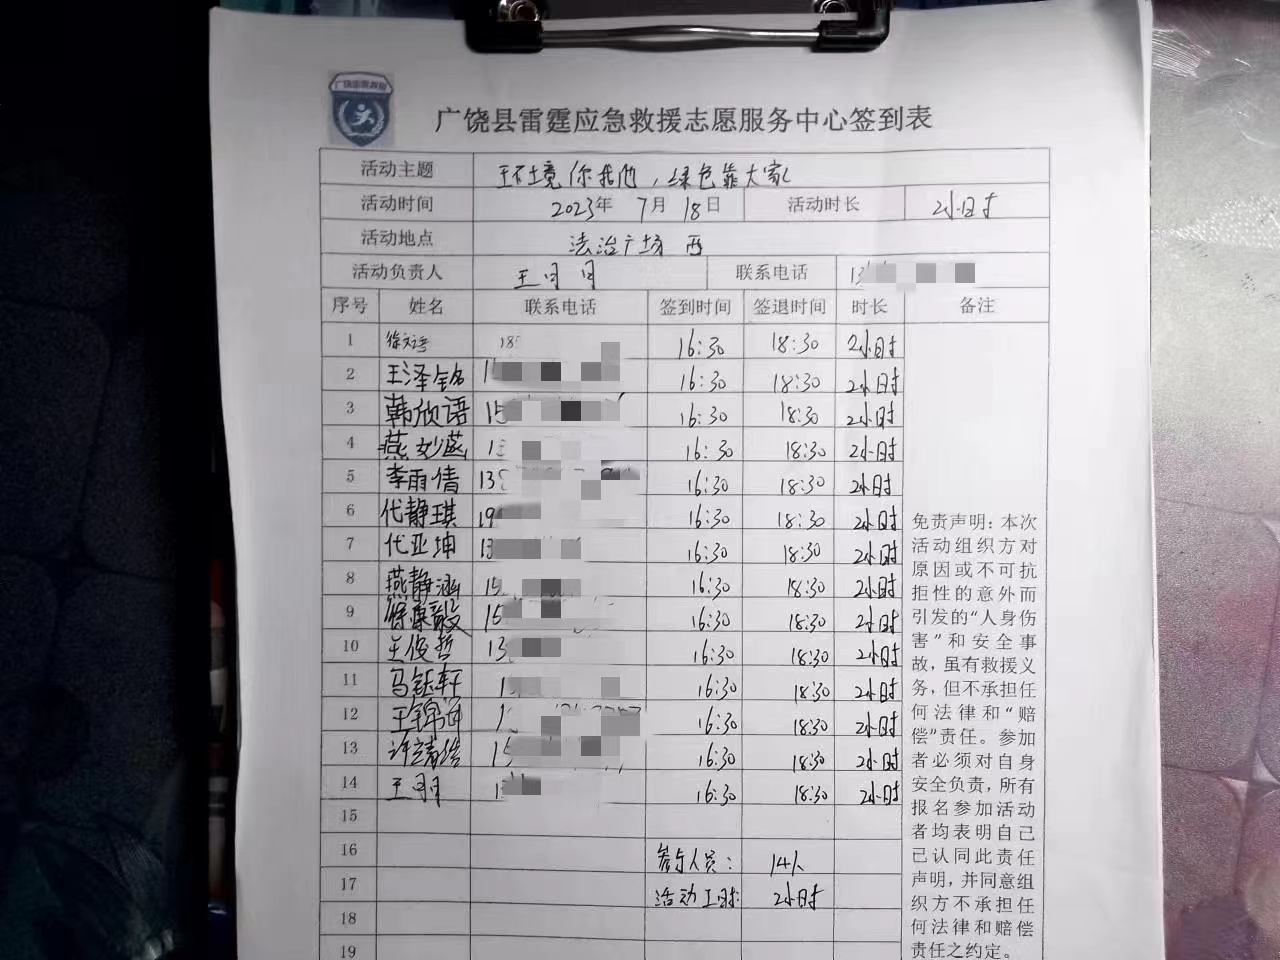 广饶县雷霆应急救援志愿服务中心签到表
活动主题 环境你我他，绿色靠大家
活动时间 2023年 7月 18日 活动时长 2小时
活动地点 法治广场 西
活动负责人 王月月 联系电话 13
序号 姓名 联系电话 签到时间 签退时间 时长 备注
1 18 16:30 18:30 2小时
2 王泽铭 1 16:30 18:30 2小时
3 韩欣语 15 16:30 18:30 2小时
4 燕妙菡 1 16:30 18:30 2小时
5 李雨倩 13 16:30 18:30 2小时
6 代静琪 19 16:30 18:30 2小时
7 代亚坤 13 16:30 18:30 2小时
8 燕静涵 15 16:30 18:30 2小时
9 徐康毅 15 16:30 18:30 2小时
10 王俊哲 13 16:30 18:30 2小时
11 马钰轩 1 16:30 18:30 2小时
12 1 16:30 18:30 2小时
13 15 16:30 18:30 2小时
14 1 16:30 18:30 2小时
15
16 参与人员： 14人
17 活动工时： 2小时
18
19
免责声明：本次
活动组织方对
原因或不可抗
拒性的意外而
引发的“人身伤
害”和安全事
故，虽有救援义
务，但不承担任
何法律和“赔
偿”责任。参加
者必须对自身
安全负责，所有
报名参加活动
者均表明自己
已认同此责任
声明，并同意组
织方不承担任
何法律和赔偿
责任之约定。